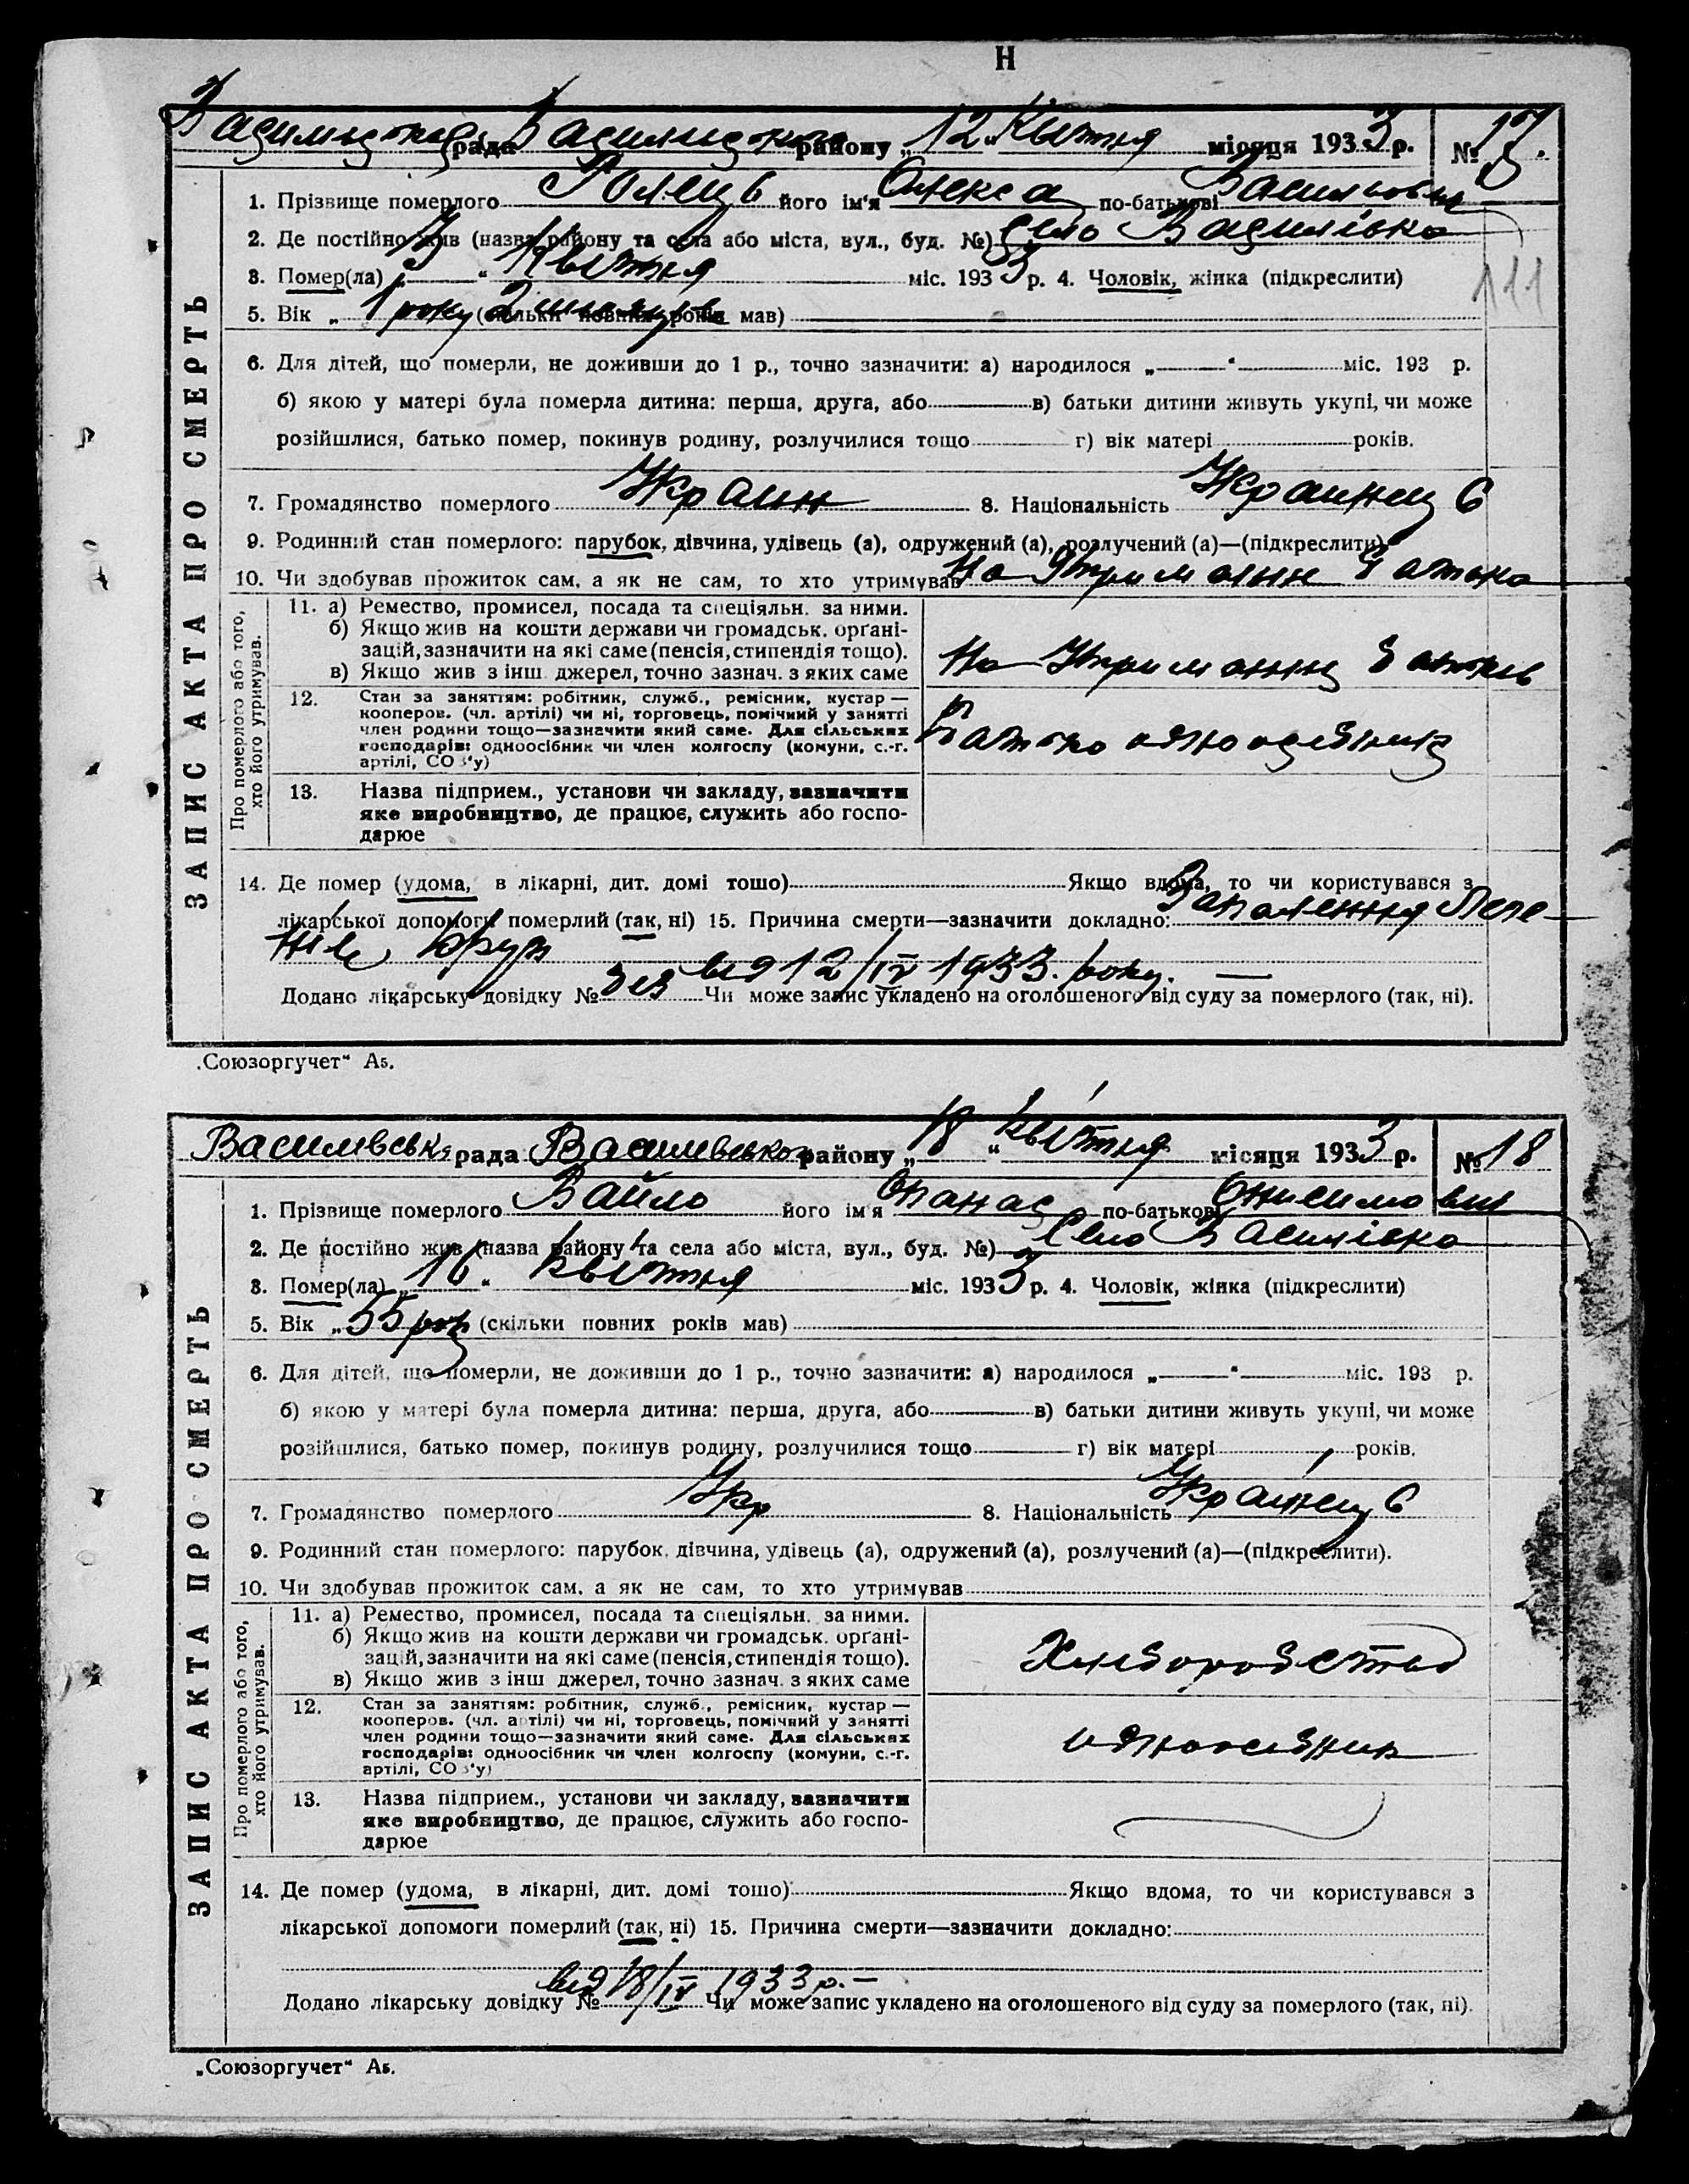 Н
Василівська рада Василівського району „12“ Квітня місяця 1933 р. № 17.
1. Прізвище померлого його ім'я Олекса по-батькові Васильович
2. Де постійно жив (назва району та села або міста, вул., буд. №) село Василівка
3. Помер(ла) „ “ Квітня міс. 1933 р. 4. Чоловік, жінка (підкреслити)
111
5. Вік „ 1 року 2 місяців (скільки повних років мав)
6. Для дітей, що померли, не доживши до 1 р., точно зазначити: а) народилося „ “ міс. 193 р.
б) якою у матері була померла дитина: перша, друга, або в) батьки дитини живуть укупі, чи може
розійшлися, батько помер, покинув родину, розлучилися тощо г) вік матері років.
7. Громадянство померлого Украин 8. Національність Украинець
9. Родинний стан померлого: парубок, дівчина, удівець (а), одружений (а), розлучений (а)—(підкреслити).
10. Чи здобував прожиток сам, а як не сам, то хто утримував На Утриманни батька
ЗАПИС АКТА ПРО СМЕРТЬ
Про померлого або того, хто його утримував.
11. а) Ремество, промисел, посада та спеціяльн. за ними.
б) Якщо жив на кошти держави чи громадськ. орґані-
зацій, зазначити на які саме (пенсія, стипендія тощо).
в) Якщо жив з інш джерел, точно зазнач. з яких саме
На Утриманни батьків
12. Стан за заняттям: робітник, служб., ремісник, кустар—
кооперов. (чл. артілі) чи ні, торговець, помічний у занятті
член родини тощо—зазначити який саме. Для сільських
господарів: одноосібник чи член колгоспу (комуни, с.-г.
артілі, СОЗ'у)
Батько одноосібник
13. Назва підприєм., установи чи закладу, зазначити
яке виробництво, де працює, служить або госпо-
дарює
14. Де помер (удома, в лікарні, дит. домі тощо) Якщо вдома, то чи користувався з
лікарської допомоги померлий (так, ні) 15. Причина смерти—зазначити докладно: Запалення Леге
нів
від 12/IV 1933. року. —
Додано лікарську довідку № Чи може запис укладено на оголошеного від суду за померлого (так, ні).
„Союзоргучет“ А5.
Василівська рада Василівського району „18“ Квітня місяця 1933 р. № 18
1. Прізвище померлого Вайло його ім'я Опанас по-батькові Онисимович
2. Де постійно жив (назва району та села або міста, вул., буд. №) Село Василівка
3. Помер(ла) „16“ Квітня міс. 1933 р. 4. Чоловік, жінка (підкреслити)
5. Вік „55 рок (скільки повних років мав)
6. Для дітей, що померли, не доживши до 1 р., точно зазначити: а) народилося „ “ міс. 193 р.
б) якою у матері була померла дитина: перша, друга, або в) батьки дитини живуть укупі, чи може
розійшлися, батько помер, покинув родину, розлучилися тощо г) вік матері років.
7. Громадянство померлого Укр 8. Національність Українець
9. Родинний стан померлого: парубок, дівчина, удівець (а), одружений (а), розлучений (а)—(підкреслити).
10. Чи здобував прожиток сам, а як не сам, то хто утримував
ЗАПИС АКТА ПРО СМЕРТЬ
Про померлого або того, хто його утримував.
11. а) Ремество, промисел, посада та спеціяльн. за ними.
б) Якщо жив на кошти держави чи громадськ. орґані-
зацій, зазначити на які саме (пенсія, стипендія тощо).
в) Якщо жив з інш джерел, точно зазнач. з яких саме
Хлиборобство
12. Стан за заняттям: робітник, служб., ремісник, кустар—
кооперов. (чл. артілі) чи ні, торговець, помічний у занятті
член родини тощо—зазначити який саме. Для сільських
господарів: одноосібник чи член колгоспу (комуни, с.-г.
артілі, СОЗ'у)
одноосібник
13. Назва підприєм., установи чи закладу, зазначити
яке виробництво, де працює, служить або госпо-
дарює
14. Де помер (удома, в лікарні, дит. домі тощо) Якщо вдома, то чи користувався з
лікарської допомоги померлий (так, ні) 15. Причина смерти—зазначити докладно:
від 18/IV 1933 р. —
Додано лікарську довідку № Чи може запис укладено на оголошеного від суду за померлого (так, ні).
„Союзоргучет“ А5.